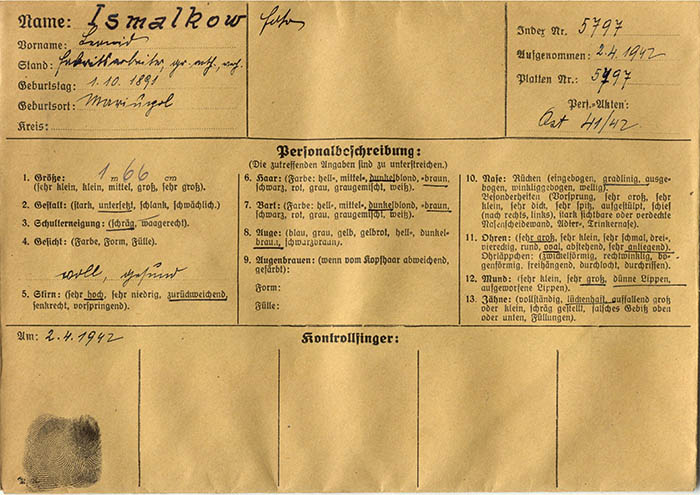 Name: Ismalkow
Foto
Vorname: Leonid
Stand: Fabriksarbeiter, gr. orth., verh.
Geburtstag: 1.10.1891
Geburtsort: Mariupol
Kreis:
Index Nr. 5797
Aufgenommen: 2.4.1942
Platten Nr.: 5797
Pers.-Akten:
Ost 41/42
Personalbeschreibung:
(Die zutreffenden Angaben sind zu unterstreichen.)
1. Größe: 1 m 66 cm
(sehr klein, klein, mittel, groß, sehr groß).
2. Gestalt: (stark, untersetzt, schlank, schwächlich.)
3. Schulterneigung: (schräg, waagerecht).
4. Gesicht: (Farbe, Form, Fülle).
voll, gesund
5. Stirn: (sehr hoch, sehr niedrig, zurückweichend,
senkrecht, vorspringend).
6. Haar: (Farbe: hell-, mittel-, dunkelblond, -braun,
schwarz, rot, grau, graugemischt, weiß).
7. Bart: (Farbe: hell-, mittel-, dunkelblond, -braun,
schwarz, rot, grau, graugemischt, weiß).
8. Auge: (blau, grau, gelb, gelbrot, hell-, dunkel-
braun, schwarzbraun).
9. Augenbrauen: (wenn vom Kopfhaar abweichend,
gefärbt):
Form:
Fülle:
10. Nase: Rücken (eingebogen, gradlinig, ausge-
bogen, winkliggebogen, wellig).
Besonderheiten (Vorsprung, sehr groß, sehr
klein, sehr dick, sehr spitz, aufgestülpt, schief
(nach rechts, links), stark sichtbare oder verdeckte
Nasenscheidewand, Adler-, Trinkernase).
11. Ohren: (sehr groß, sehr klein, sehr schmal, drei-,
viereckig, rund, oval, abstehend, sehr anliegend).
Ohrläppchen: (zwickelförmig, rechtwinklig, bo-
genförmig, freihängend, durchlocht, durchrissen).
12. Mund: (sehr klein, sehr groß, dünne Lippen,
aufgeworfene Lippen).
13. Zähne: (vollständig, lückenhaft, auffallend groß
oder klein, schräg gestellt, falsches Gebiß oben
oder unten, Füllungen).
Am: 2.4.1942
Kontrollfinger: